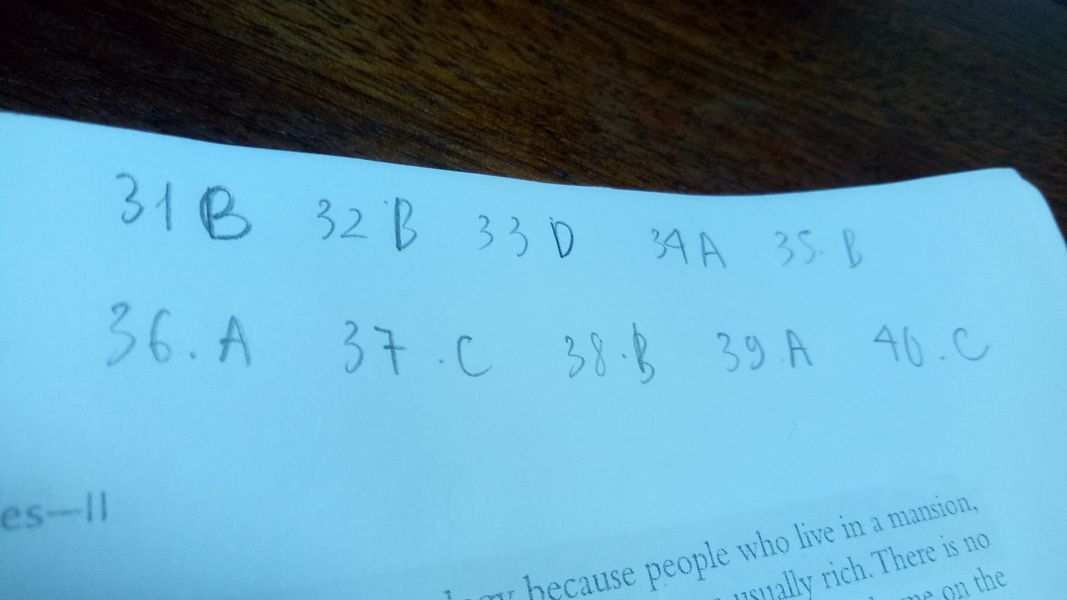 31 B 32 B 33 D 34 A 35. B
36. A 37. C 38. B 39 A 40. C
es—II
because people who live in a mansion,
usually rich. There is no
on the